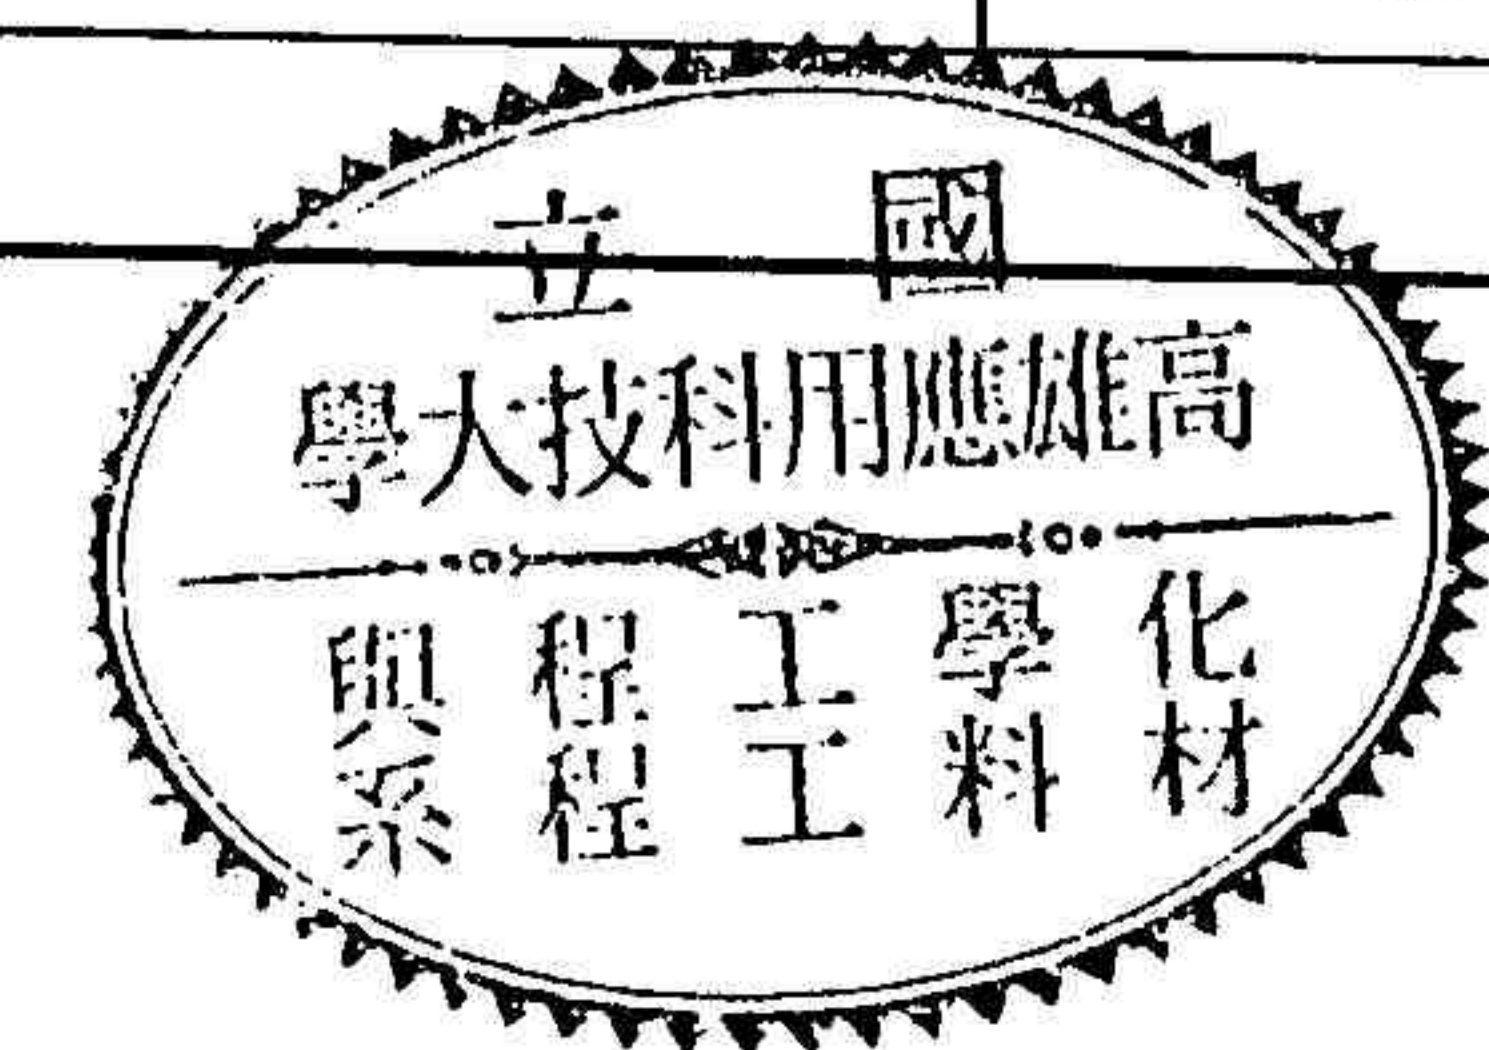 國立
高雄應用科技大學
化學工程與
材料工程系